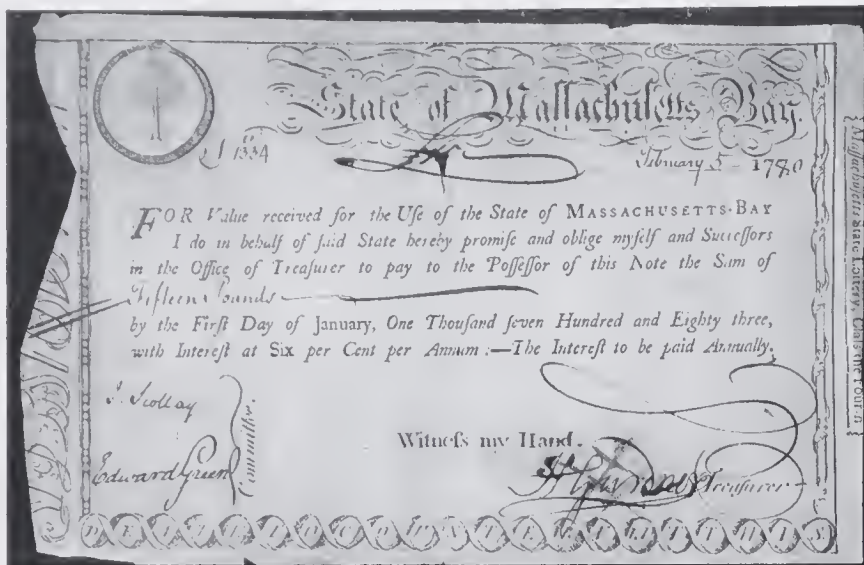 State of Massachusetts Bay.
1334
February 5 1780
FOR Value received for the Uſe of the State of MASSACHUSETTS-BAY
I do in behalf of ſaid State hereby promiſe and oblige myſelf and Succeſſors
in the Office of Treaſurer to pay to the Poſſeſſor of this Note the Sum of
Fifteen Pounds
by the Firſt Day of January, One Thouſand ſeven Hundred and Eighty three,
with Intereſt at Six per Cent per Annum :—The Intereſt to be paid Annually.
J. Scollay
Edward Green
Committee.
Witneſs my Hand.
Treaſurer
Maſſachuſetts State Lottery, Claſs the Fourth